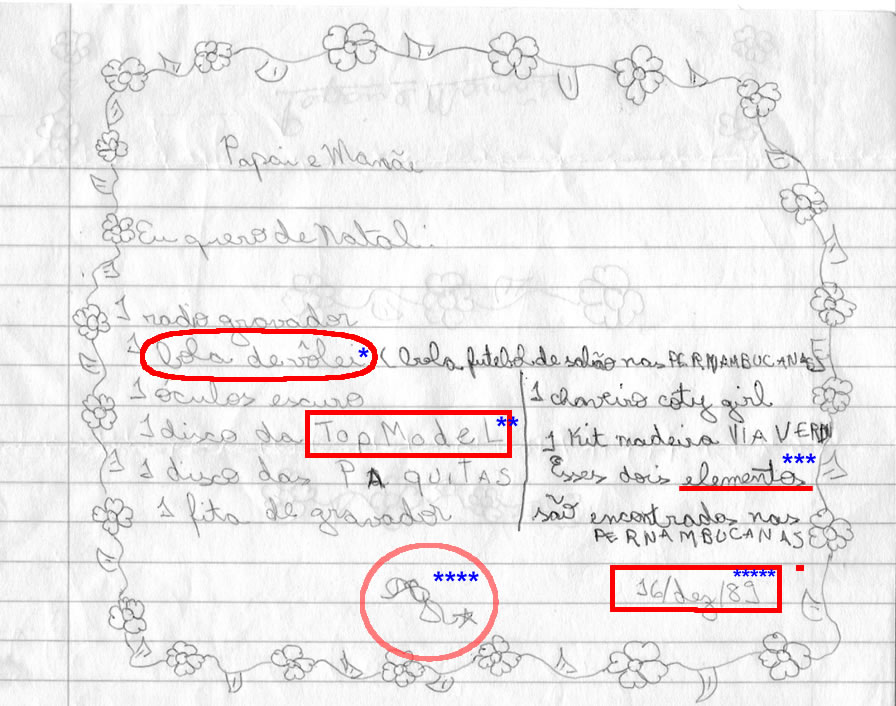 Papai e Mamãe
Eu quero de Natal:
1 radio gravador
1 bola de vôlei* (bola futebol de salão nas PERNAMBUCANAS
1 óculos escuro
1 disco da Top Model**
1 disco das PAQUITAS
1 fita de gravador
1 chaveiro coty girl
1 Kit madeira VIA VERDI
Esses dois elementos***
são encontrados nas
PERNAMBUCANAS
****
16/dez/89*****